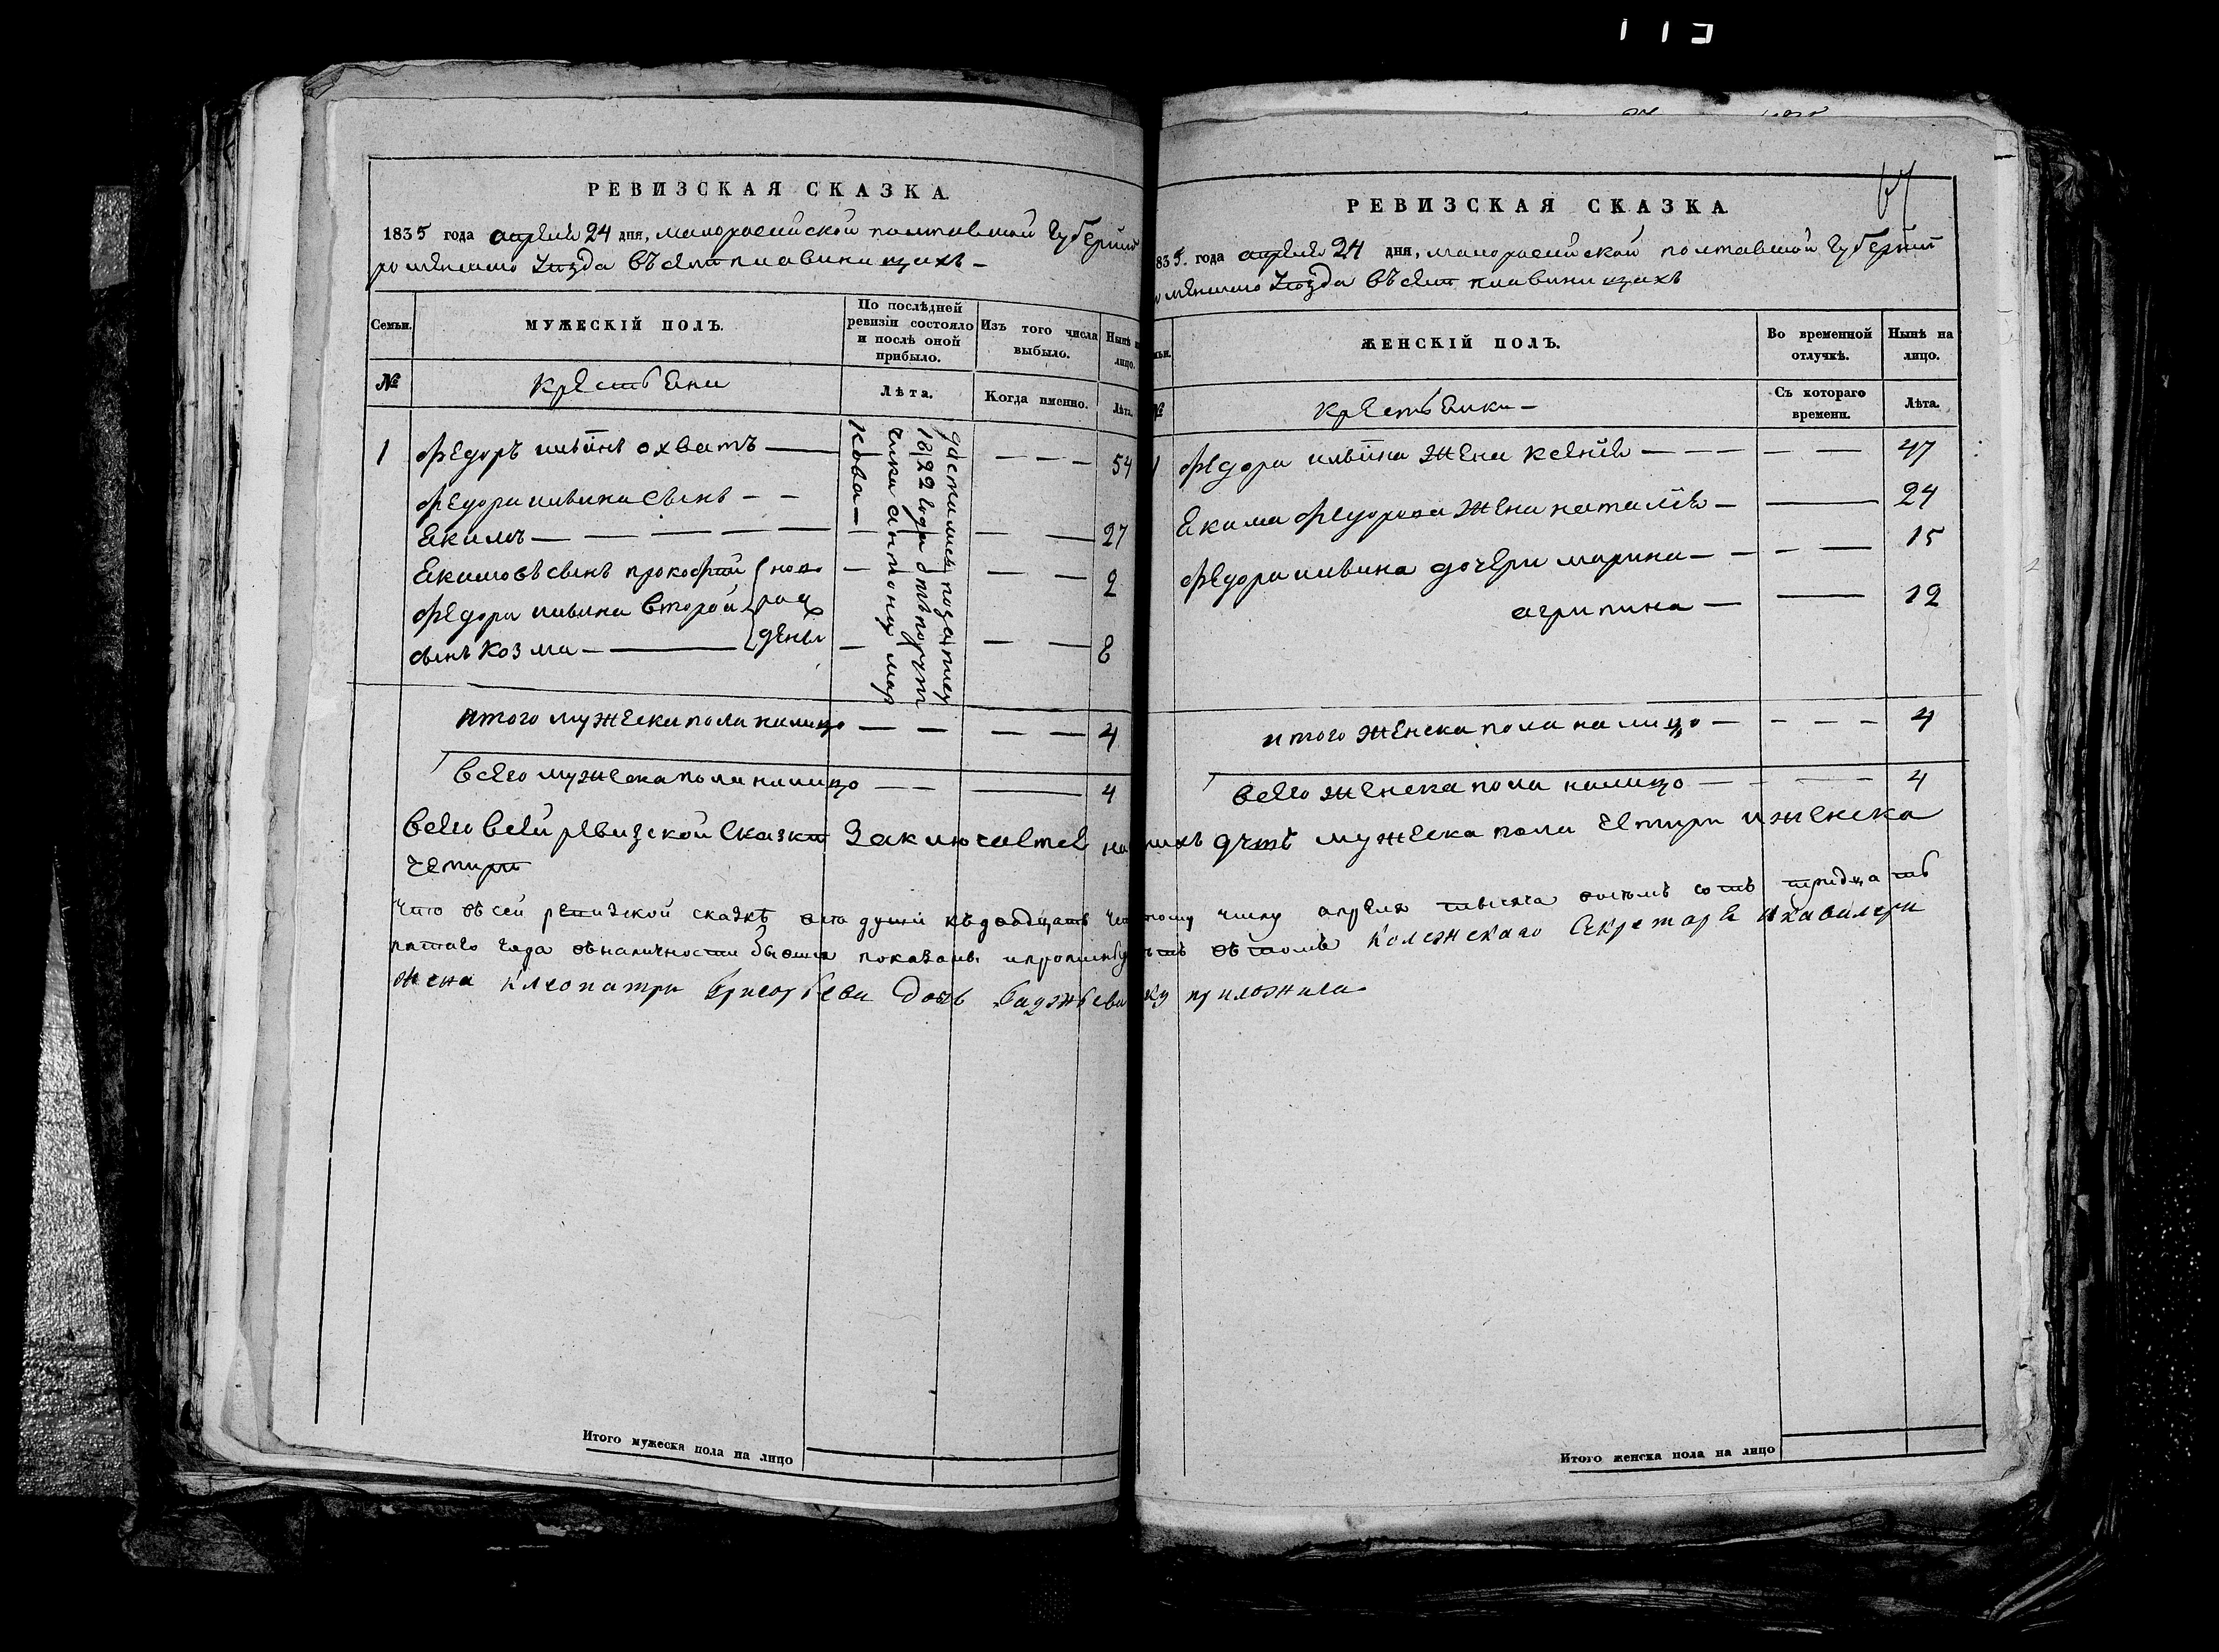 113
РЕВИЗСКАЯ СКАЗКА.
1835 года апреля 24 дня, малоросийской полтавской Губернии
роменского уезда въ селе плавинищахъ –
Семьи.
МУЖЕСКІЙ ПОЛЪ.
По послѣдней ревизіи состояло и послѣ оной прибыло.
Изъ того числа выбыло.
Нынѣ на лицо.
№
крестьяни
Лѣта.
Когда именно.
Лѣта.
1 Федоръ ильинъ охватъ 54
Федора ильина сынъ
Екимъ 27
Екимовъ сынъ прокофий ново 2
Федора ильина второй рож
сынъ Козма дены 8
достались позапису
1822 года отъ порут
чика антона мар
кова –
итого мужеска пола налицо 4
всего мужеска пола налицо 4
РЕВИЗСКАЯ СКАЗКА.
835. года апреля 24 дня, малоросийской полтавской Губернии
роменского уезда въ селе плавинищахъ
ЖЕНСКІЙ ПОЛЪ.
Во временной отлучкѣ.
Нынѣ на лицо.
№
крестьянки –
Съ котораго времени.
Лѣта.
1 Федора ильина жена ксения 47
Екима Федорова жена наталия 24
Федора ильина дочери марина 15
агрипина 12
итого женска пола на лицо 4
всего женска пола налицо 4
всего всей ревизской сказки заключается наличныхъ душъ мужеска пола четири и женска
четири
Что въ сей ревизской сказкѣ все души къ двадцать четвертому числу апреля тысяча восемь сотъ тридцать
пятаго года въ наличности бывшия показаны и прописныхъ нетъ въ томъ Колежскаго Секретаря и кавалера
жена Клеопатра Григорьева дочь
приложила
Итого мужеска пола на лицо
Итого женска пола на лицо